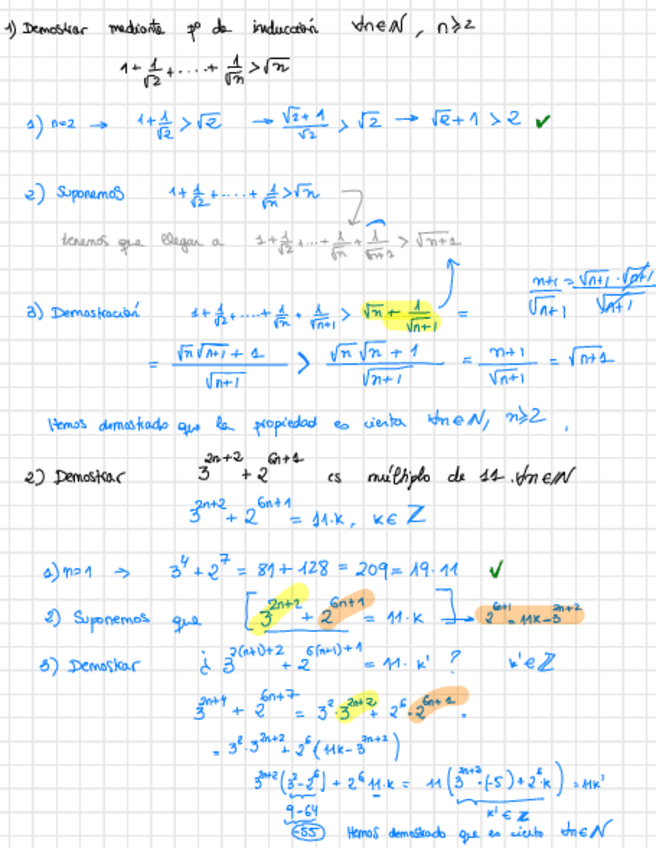 1) Demostrar mediante pº de inducción ∀n∈N, n≥2
1+1/√2+....+1/√n>√n
1) n=2 → 1+1/√2>√2 → (√2+1)/√2>√2 → √2+1>2 ✓
2) Suponemos 1+1/√2+.....+1/√n>√n
tenemos que llegar a 1+1/√2+...+1/√n+1/√(n+1)>√(n+1)
(n+1)/√(n+1)=(√(n+1)·√(n+1))/√(n+1)
3) Demostración 1+1/√2+....+1/√n+1/√(n+1)>√n+1/√(n+1)=
=(√n√(n+1)+1)/√(n+1)>(√n√n+1)/√(n+1)=(n+1)/√(n+1)=√(n+1)
Hemos demostrado que la propiedad es cierta ∀n∈N, n≥2.
2) Demostrar 3^(2n+2)+2^(6n+1) es múltiplo de 11.∀n∈N
3^(2n+2)+2^(6n+1)=11·k, k∈Z
1) n=1 → 3^4+2^7=81+128=209=19·11 ✓
2) Suponemos que [3^(2n+2)+2^(6n+1)=11·k] → 2^(6n+1)=11k-3^(2n+2)
3) Demostrar ¿3^(2(n+1)+2)+2^(6(n+1)+1)=11·k'? k'∈Z
3^(2n+4)+2^(6n+7)=3^2·3^(2n+2)+2^6·2^(6n+1)=
=3^2·3^(2n+2)+2^6(11k-3^(2n+2))
3^(2n+2)(3^2-2^6)+2^6 11·k=11(3^(2n+2)·(-5)+2^6·k)=11k'
9-64 k'∈Z
-55 Hemos demostrado que es cierto ∀n∈N